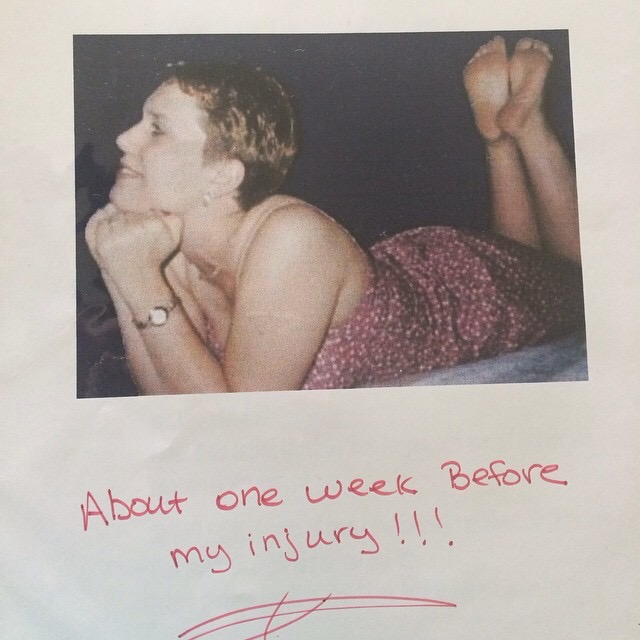 About one week Before
my injury!!!